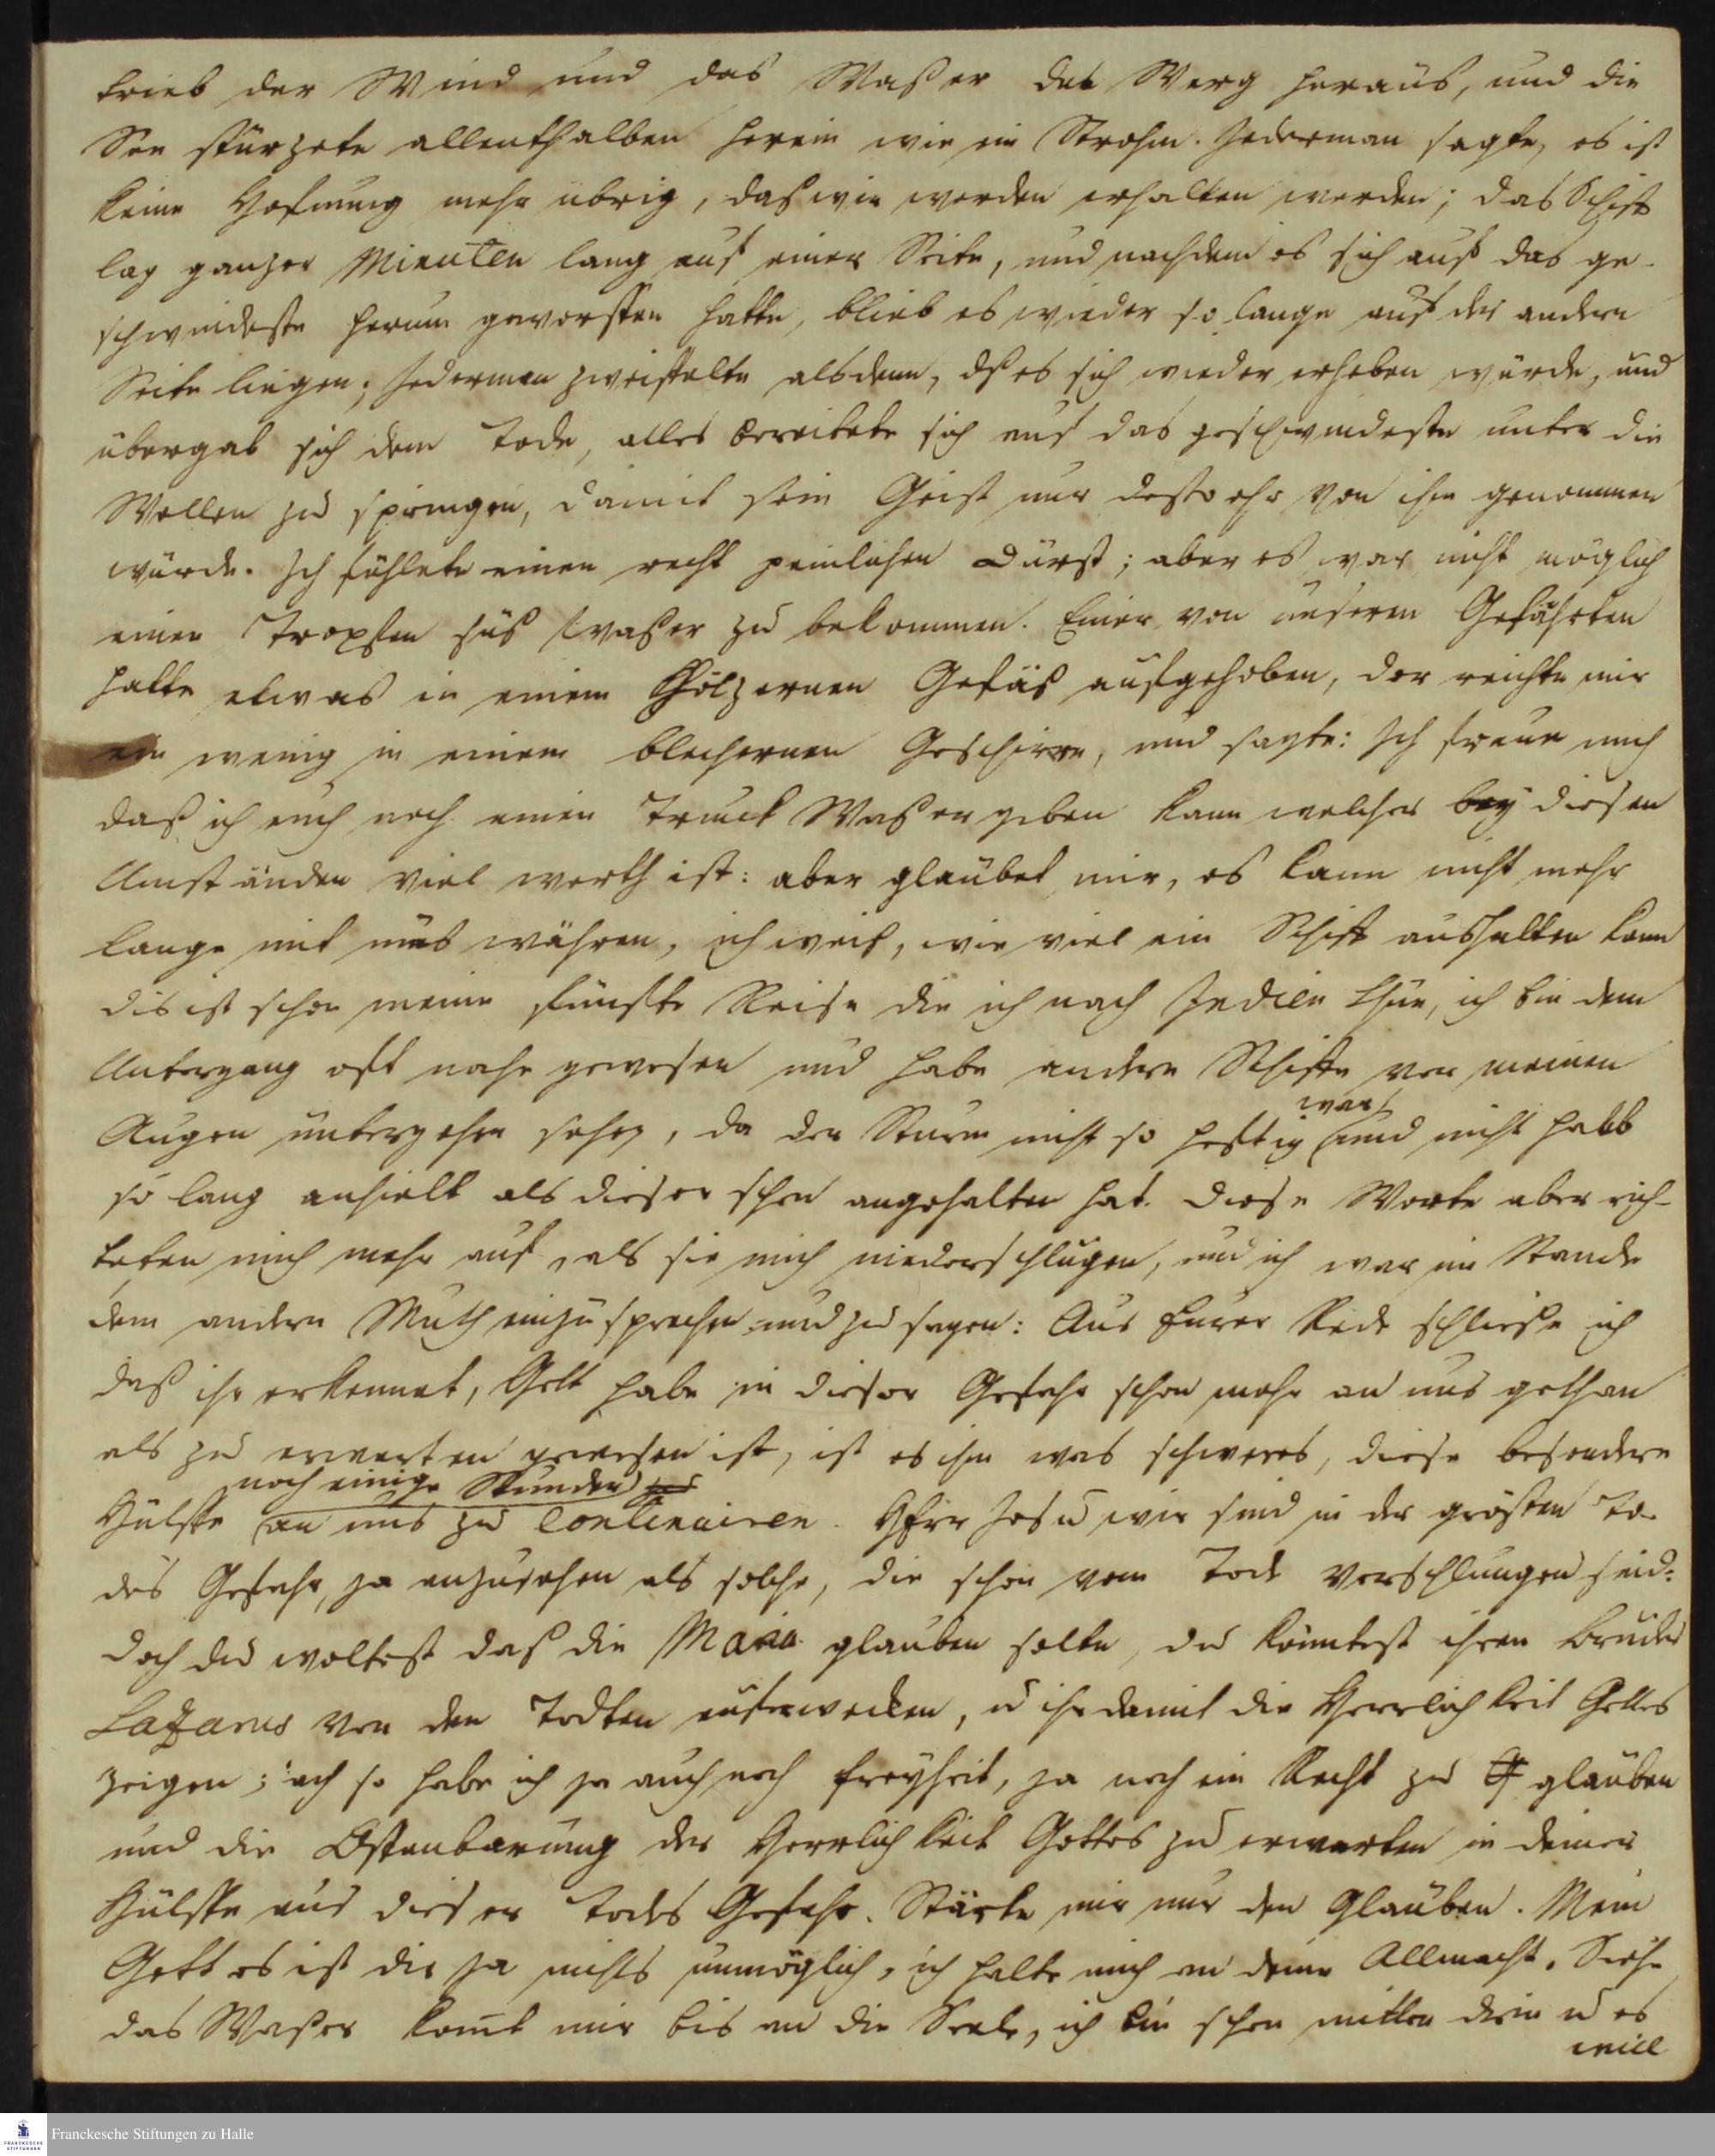 trieb der Wind und das Waßer das Werg heraus, und die
See stürzete allenthalben herein wie ein Strohm. Jederman sagte, es ist
keine Hofnung mehr übrig, daß wir werden erhalten werden; das Schiff
lag ganzer Minuten lang auf einer Seite, und nachdem es sich auf das ge-
schwindeste herum geworffen hatte, blieb es wieder so lange auf der andern
Seite liegen; Jederman zweiffelte alsdenn, dß es sich wieder erheben würde, und
übergab sich dem Tode, alles bereitete sich auf das geschwindeste unter die
Wellen zu springen, damit sein Geist nur desto ehr von ihm genommen
würde. Ich fühlete einen recht peinlichen Durst; aber es war nicht möglich
einen Tropffen süß Waßer zu bekommen. Einer von unseren Gefährten
hatte etwas in einem Höltzernen Gefäß aufgehoben, der reichte mir
ein wenig in einem blechernen Geschirre, und sagte: Ich freue mich
daß ich euch noch einen Trunck Waßer geben kann welcher bey diesen
Umständen viel werth ist: aber glaubet mir, es kann nicht mehr
lange mit uns währen, ich weiß, wie viel ein Schiff aushalten kann
dis ist schon meine fünfte Reise die ich nach Indien thue, ich bin dem
Untergang oft nahe gewesen und habe andere Schiffe vor meinen
Augen untergehen sehen, da der Sturm nicht so heftig war und nicht halb
so lang anhielt als dieser schon angehalten hat. Diese Worte aber rich-
teten mich mehr auf, als sie mich niederschlugen, und ich war im Stande
dem andern Muth einzusprechen und zu sagen: Aus Eurer Rede schließe ich
daß ihr erkennet, Gott habe in dieser Gefahr schon mehr an uns gethan
als zu erwarten gewesen ist, ist es ihm was schweres, diese besondere
Hülffe noch einige Stunden an uns zu continuiren. HErr Jesu wir sind in der größten To-
des Gefahr, ja anzusehen als solche, die schon vom Tode verschlungen sind:
doch du woltest daß die Maria glauben solte, du könntest ihren Bruder
Lazarus von den Todten auferwecken, u ihr damit die Herrlichkeit Gottes
zeigen; ach so habe ich ja auch noch Freyheit, ja noch ein Recht zu glauben
und die Offenbarung der Herrlichkeit Gottes zu erwarten in deiner
Hülffe aus dieser Todes Gefahr. Stärke mir nur den Glauben. Mein
Gott es ist dir ja nichts unmöglich, ich halte mich an deine Allmacht. Siehe
das Waßer komt mir bis an die Seele, ich bin schon mitten drin u es
will
Franckesche Stiftungen zu Halle